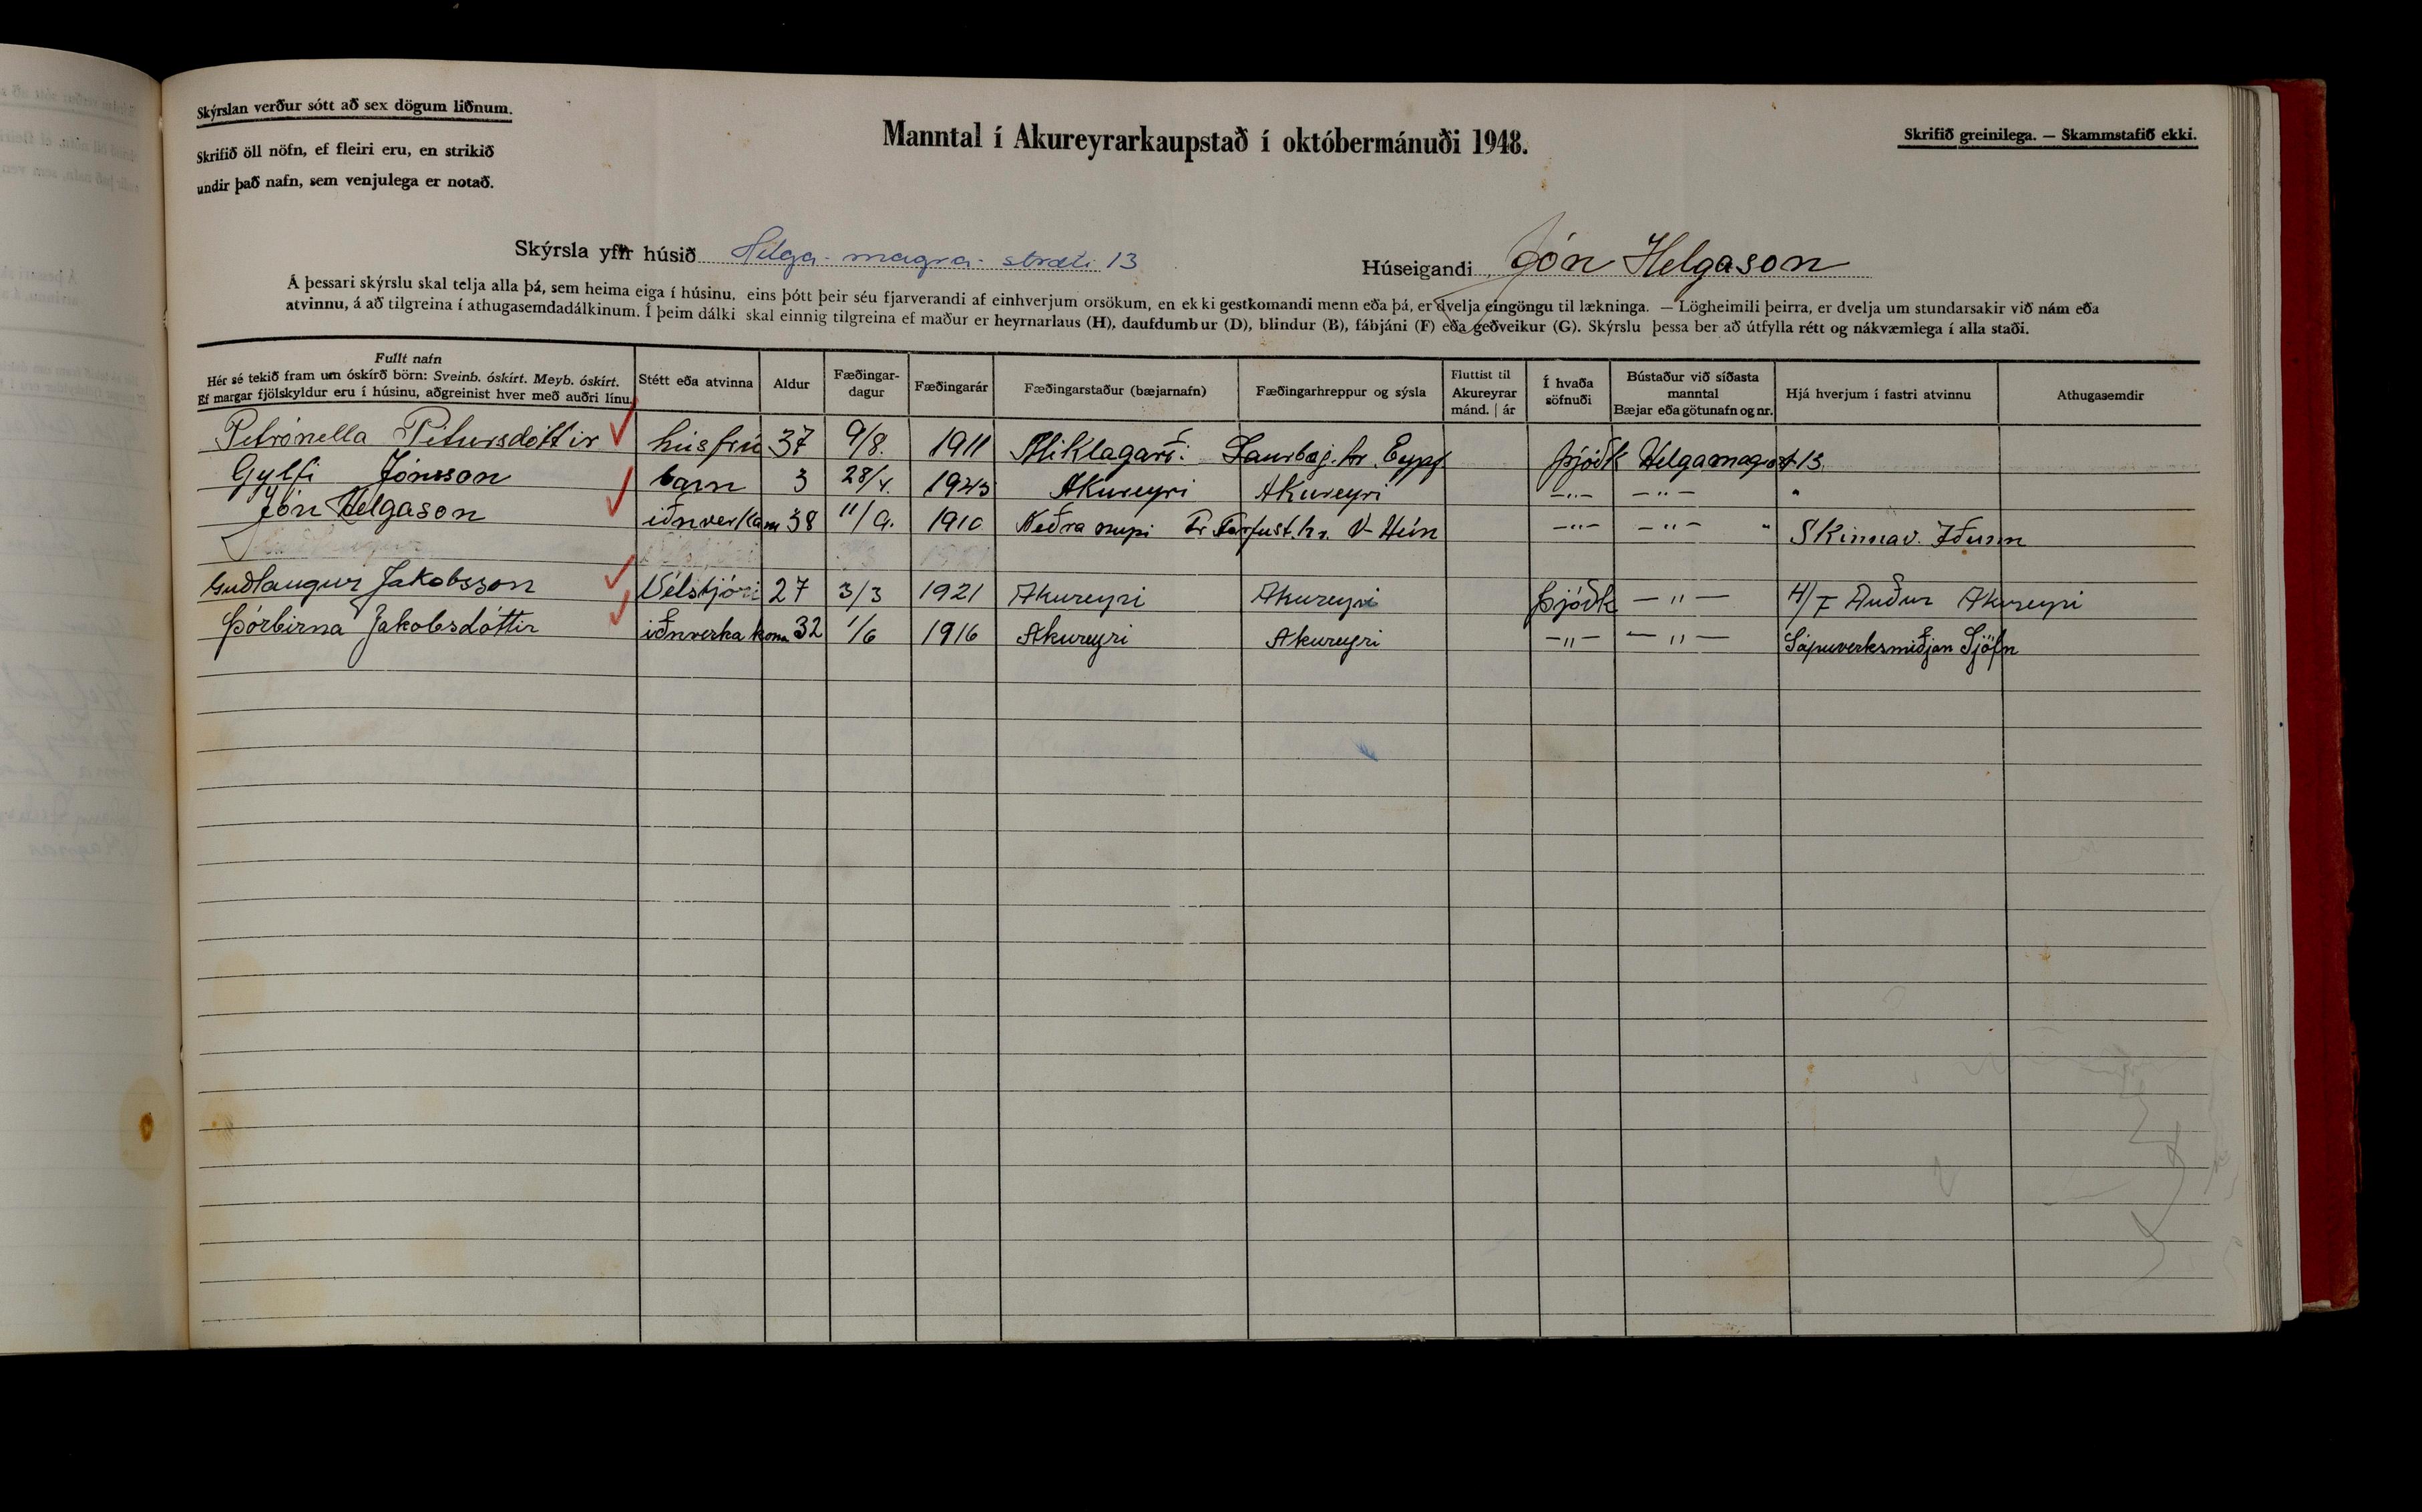 Skýrslan verður sótt að sex dögum liðnum.
Skrifið öll nöfn, ef fleiri eru, en strikið
undir það nafn, sem venjulega er notað.
Manntal í Akureyrarkaupstað í októbermánuði 1948.
Skrifið greinilega. — Skammstafið ekki.
Skýrsla yfir húsið Helga-magra-stræti 13
Húseigandi Jón Helgason
Á þessari skýrslu skal telja alla þá, sem heima eiga í húsinu, eins þótt þeir séu fjarverandi af einhverjum orsökum, en ekki gestkomandi menn eða þá, er dvelja eingöngu til lækninga. — Lögheimili þeirra, er dvelja um stundarsakir við nám eða
atvinnu, á að tilgreina í athugasemdadálkinum. Í þeim dálki skal einnig tilgreina ef maður er heyrnarlaus (H), daufdumbur (D), blindur (B), fábjáni (F) eða geðveikur (G). Skýrslu þessa ber að útfylla rétt og nákvæmlega í alla staði.
Fullt nafn
Hér sé tekið fram um óskírð börn: Sveinb. óskírt. Meyb. óskírt.
Ef margar fjölskyldur eru í húsinu, aðgreinist hver með auðri línu.
Stétt eða atvinna
Aldur
Fæðingar-
dagur
Fæðingarár
Fæðingarstaður (bæjarnafn)
Fæðingarhreppur og sýsla
Fluttist til
Akureyrar
mánd. | ár
Í hvaða
söfnuði
Bústaður við síðasta
manntal
Bæjar eða götunafn og nr.
Hjá hverjum í fastri atvinnu
Athugasemdir
Petrónella Pétursdóttir húsfrú 37 9/8. 1911 Miklagarði Saurbæj.hr. Eyjf þjóðk Helgamagrast 13
Gylfi Jónsson barn 3 28/4. 1945 Akureyri Akureyri —"— —"— "
Jón Helgason iðnverkam 38 11/9. 1910 Neðra núpi Fr Torfust.hr. V-Hún —"— —"— " Skinnav. Iðunn
Guðlaugur Jakobsson Vélstjóri 27 3/3 1921 Akureyri Akureyri Þjóðk —"— H/F Auður Akureyri
Þórbirna Jakobsdóttir iðnverkakona 32 1/6 1916 Akureyri Akureyri —"— —"— Sápuverksmiðjan Sjöfn